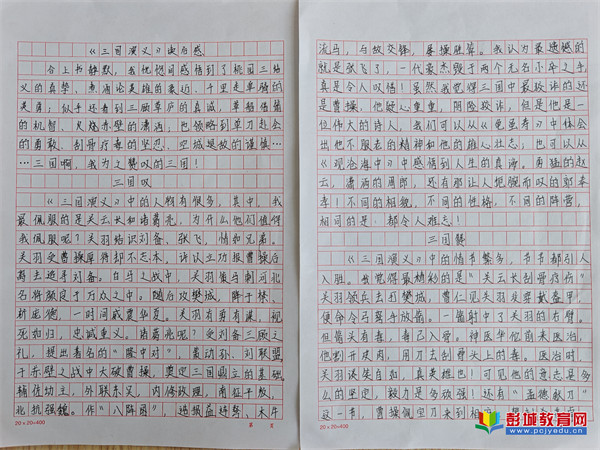 《三国演义》读后感
合上书静默，我恍惚间感悟到了桃园三结
义的真挚，煮酒论英雄的豪迈，千里走单骑的
英勇；似乎还看到三顾草庐的真诚，草船借箭
的机智，火烧赤壁的潇洒；也领略到单刀赴会
的勇敢，刮骨疗毒的坚忍，空城是故的谨慎……
…三国啊，我为之赞叹的三国！
三国叹
《三国演义》中的人物有很多，其中，我
最佩服的是关云长和诸葛亮。为什么他们值得
我佩服呢？关羽结识刘备、张飞，情如兄弟。
关羽受曹操厚待却不忘本，诛以立功报曹操后
离去追寻刘备。白马之战中，关羽策马刺河北
名将颜良于万众之中。随后攻樊城，降于禁、
斩庞德，一时间威震华夏。关羽有勇有谋，视
死如归，忠诚重义。诸葛亮呢？受刘备三顾之
礼，提出着名的“隆中对”，鼓动孙、刘联盟
于赤壁之战中大破曹操，奠定三国鼎立的基础。
辅佐幼主，外联东吴，内修政理，南征千敖，
北抗强魏。作“八阵图”，造损益连弩、木牛
20×20=400
第 页
流马，与敌交锋，屡操胜算。我认为最遗憾的
就是张飞了，一代豪杰毁于两个无名小卒之手
真是令人叹惜！虽然我觉得三国中最狡诈的还
是曹操，他疑心重重，阴险狡诈，但是他是一
位伟大的诗人，我们可以从《龟虽寿》中体会
出他不服老的精神和他的雄心壮志；也可以从
《观沧海中》中感悟到人生的真海。勇猛的赵
云，潇洒的周郎，还有那让人扼腕而叹的郭奉
孝！不同的相貌，不同的性格，不同的阵营，
相同的是：都令人难忘！
三国赞
《三国演义》中的情节繁多，节节都引人
入胜。我觉得最精彩的是“关云长刮骨疗伤”
关羽领兵去团樊城，曹仁见关羽没穿戴盔甲，
便命令弓弩手放箭。一箭射中了关羽的右臂。
但箭头有毒，毒已入骨。神医华佗前来医治，
他割开皮肉，用刀去刮骨头上的毒。医治时，
关羽谈笑自如，真英雄也！可见他的意志是多
么的坚定，毅力是多顽强！还有“孟德献刀”
这一节，曹操佩宝刀来到相
20×20=400
彭城教育网
www.pcjyedu.cn